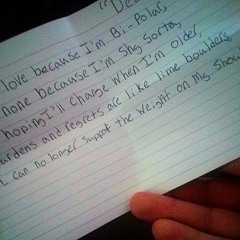 "De
love because I'm Bi-Polar,
none because I'm Shy Sorta,
hoping I'll change when I'm older,
ardens and regrets are like lime boulders,
I can no longer suppot the weight on my shou